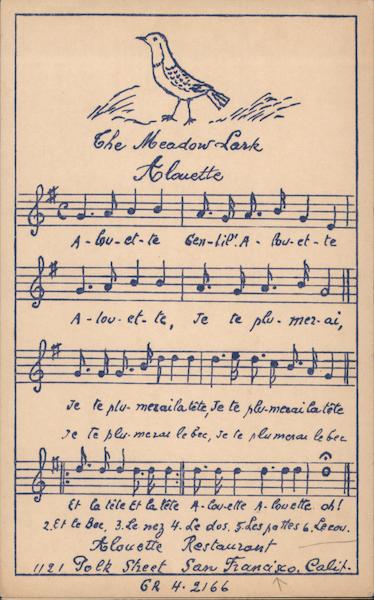 The Meadow-Lark
Alouette
A-lou-et-te Gen-til'. A-lou-et-te
A-lou-et-te, Je te plu-mer-ai,
Je te plu-merai la tête, Je te plu-merai la tête
Je te plu-merai le bec, Je te plumerai le bec
Et la tête Et la tête A-lou-ette A-louette oh!
2. Et le Bec, 3. Le nez 4. Le dos. 5. Les pattes 6. Le cou.
Alouette Restaurant
1121 Polk Street San Francisco, Calif.
GR 4-2166